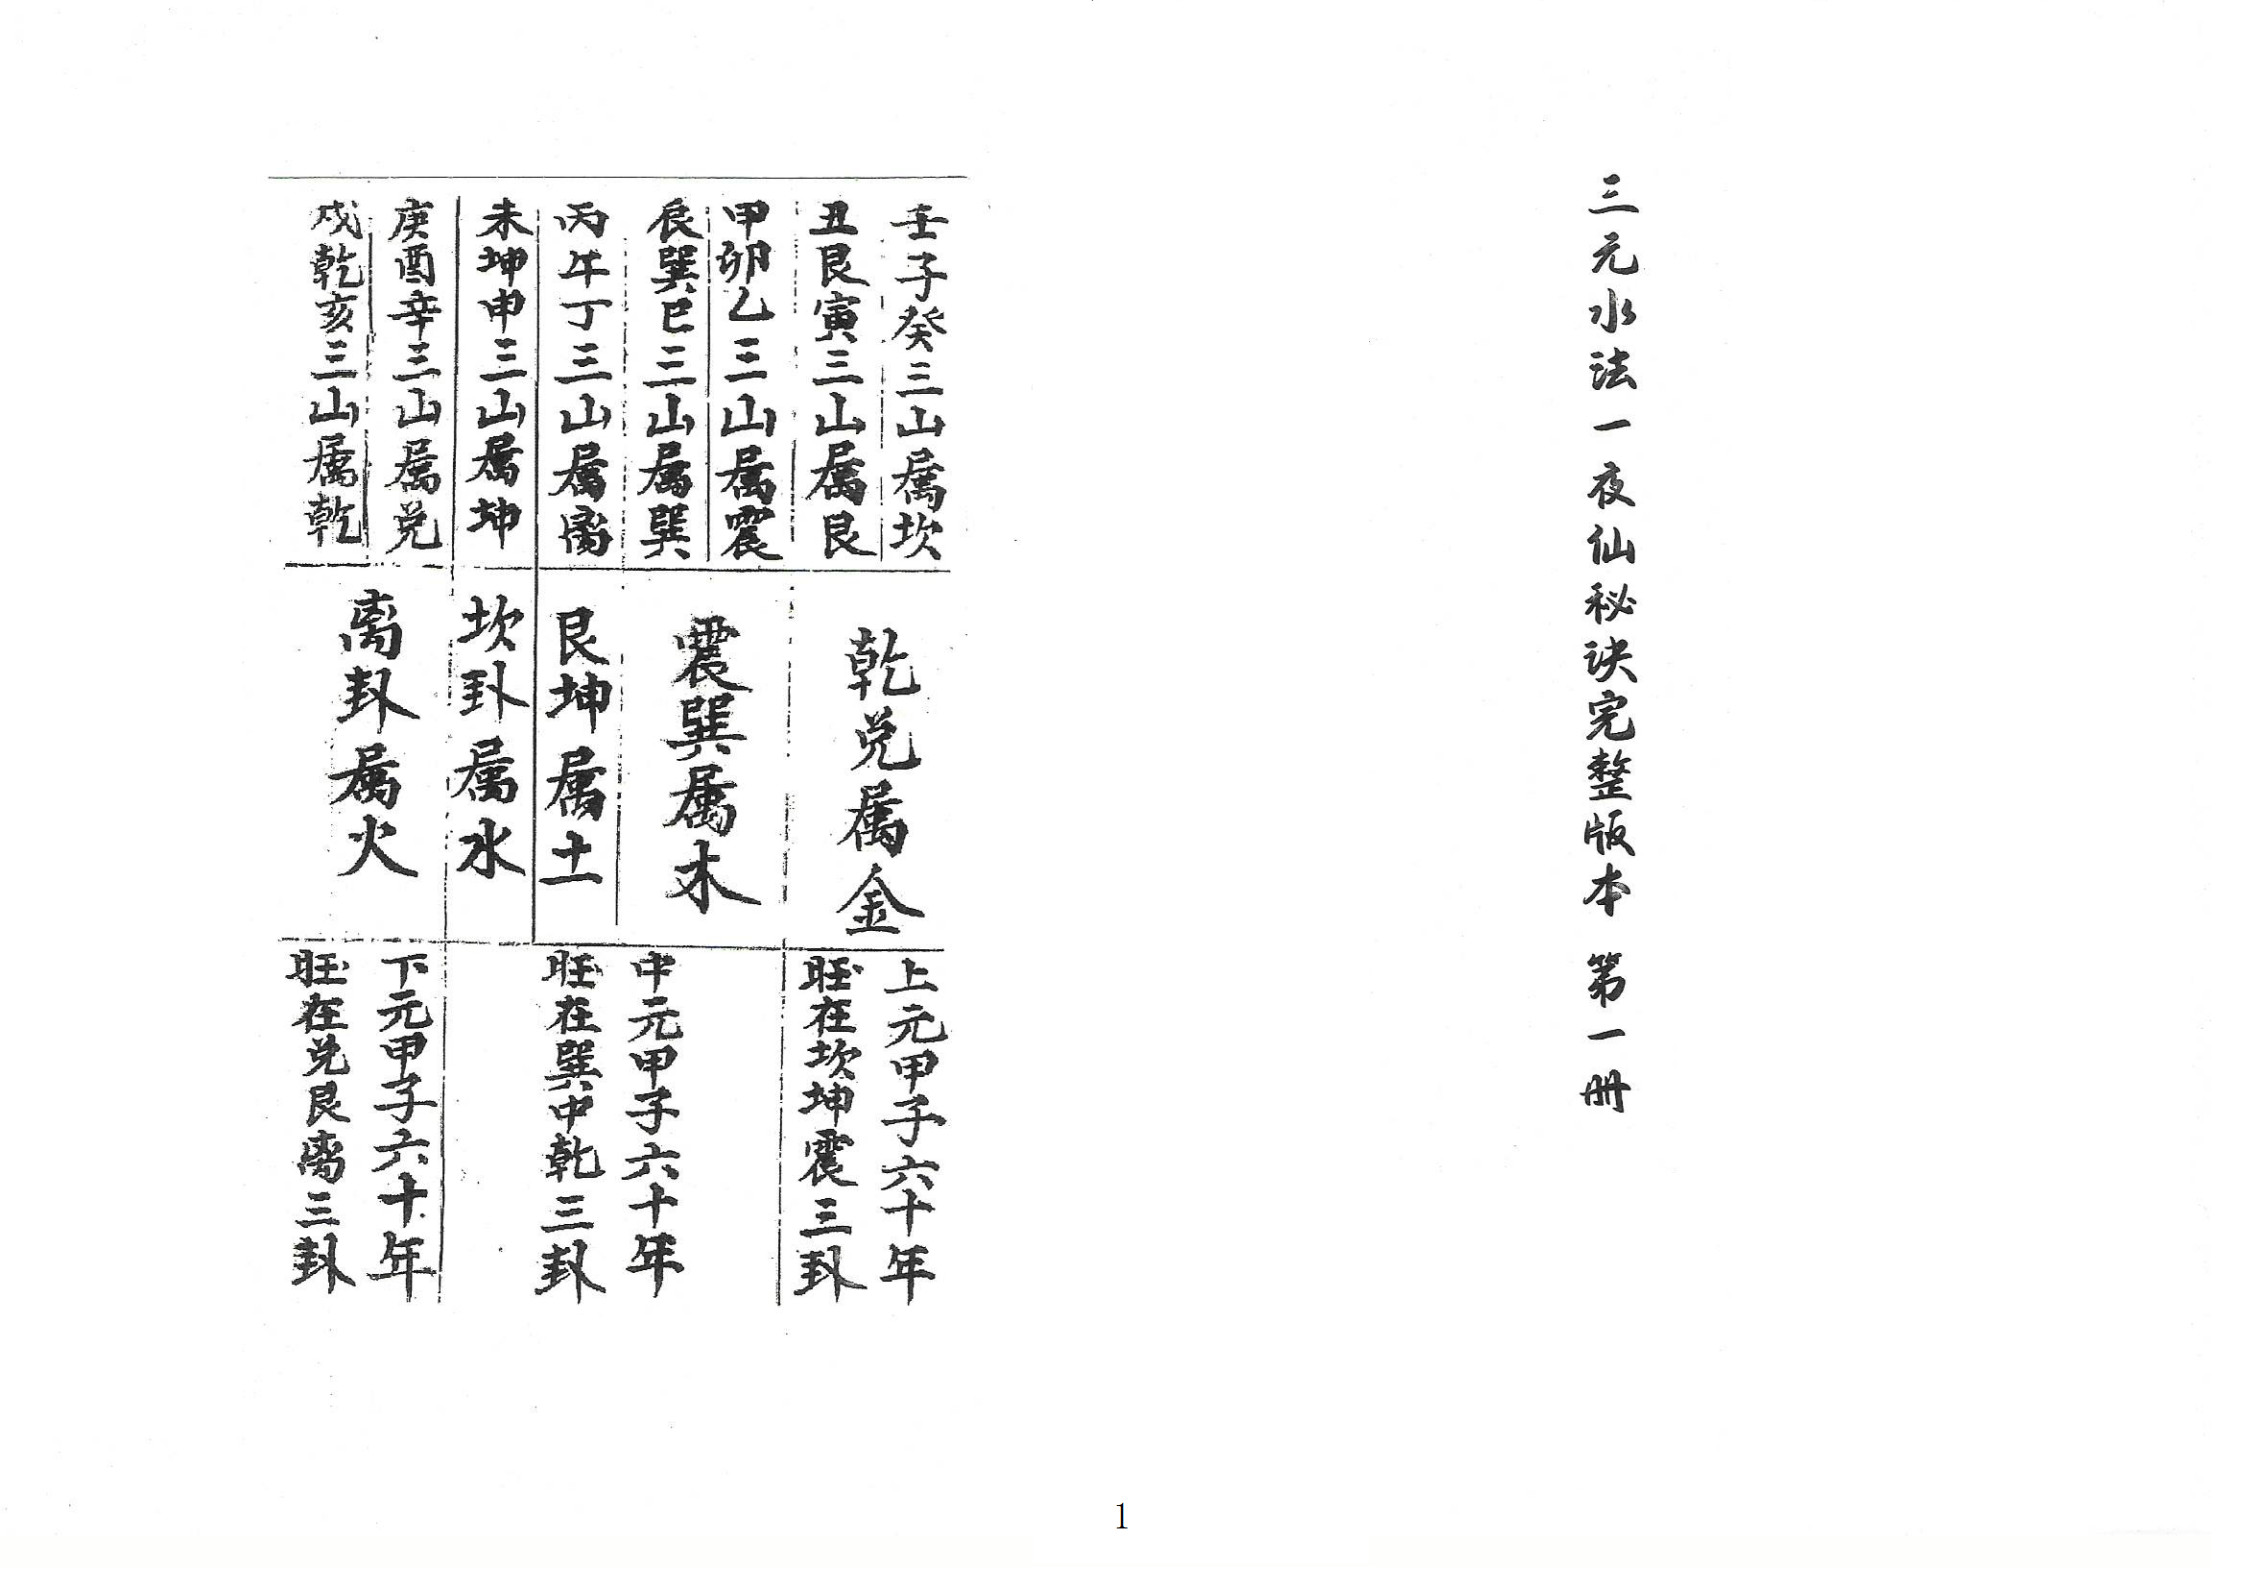 三元水法一夜仙秘诀完整版本 第一册
壬子癸三山属坎
丑艮寅三山属艮
甲卯乙三山属震
辰巽巳三山属巽
丙午丁三山属离
未坤申三山属坤
庚酉辛三山属兑
戍乾亥三山属乾
乾兑属金
震巽属木
艮坤属土
坎卦属水
离卦属火
上元甲子六十年
旺在坎坤震三卦
中元甲子六十年
旺在巽中乾三卦
下元甲子六十年
旺在兑艮离三卦
1